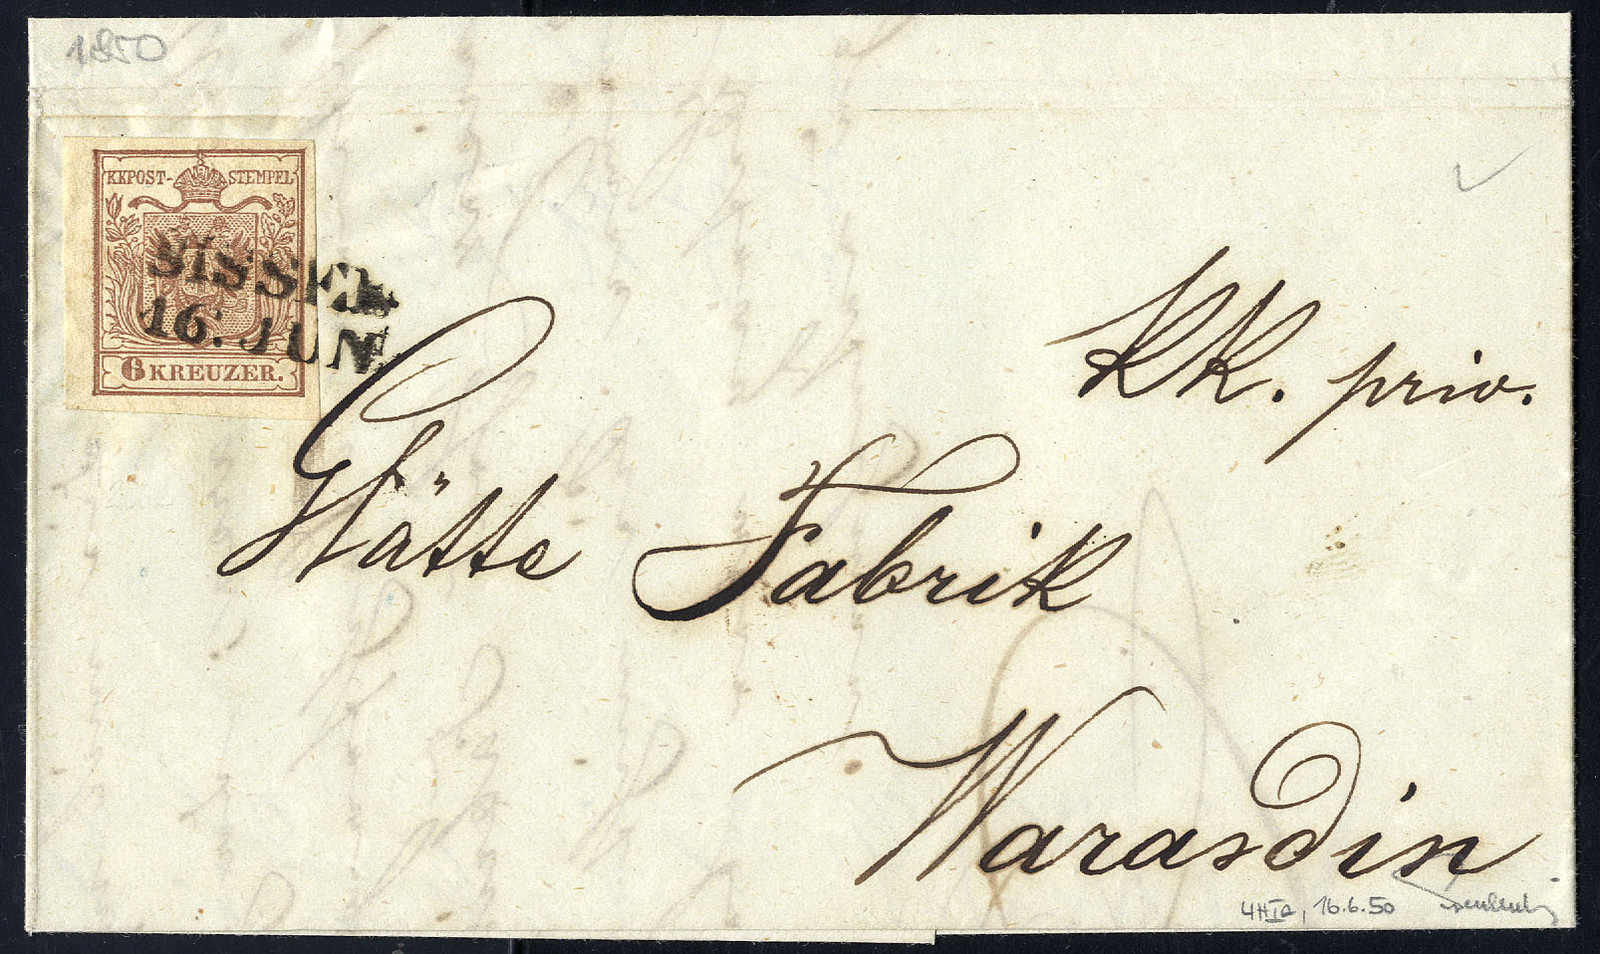 1850
KKPOST-STEMPEL
SISSEK
16. JUN
6 KREUZER.
KK. priv.
Hätte Fabrik
Warasdin
4HIa, 16.6.50